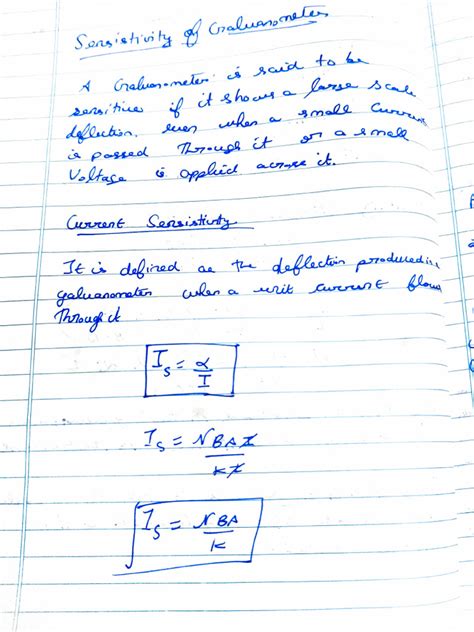 Sensistivity of Gralvanometer
A Gralvanometer is said to be
sensitive if it shows a large scale
deflection, even when a small Current
is passed Through it or a small
Voltage is applied across it.
Current Sensistivity
It is defined as the deflection produced in
galvanometer when a unit current flows
Through it
I_s = α/I
I_s = NBAI/KI
I_s = NBA/K